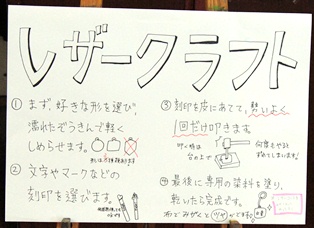 レザークラフト
① まず、好きな形を選び、
濡れたぞうきんで軽く
しめらせます。
② 文字やマークなどの
刻印を選びます。
③ 刻印を皮にあてて、勢いよく
1回だけ叩きます。
叩く時は
台の上で
何度もやると
ずれてしまいます!
④ 最後に専用の染料を塗り、
乾いたら完成です。
布でみがくと ツヤ がでます